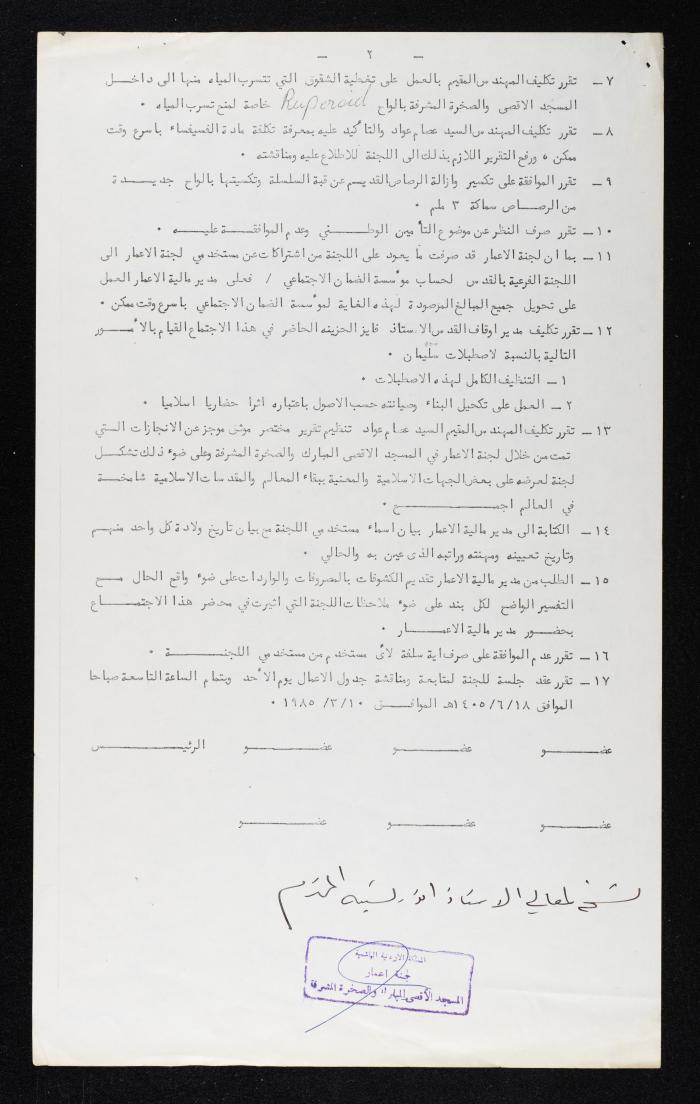 - ٢ -
٧ - تقرر تكليف المهندس المقيم بالعمل على تغطية الشقوق التي تتسرب المياه منها الى داخل
المسجد الاقصى والصخرة المشرفة بالواح Ruperoid خاصة لمنع تسرب المياه ٠
٨ - تقرر تكليف المهندس السيد عصام عواد والتأكيد عليه بمعرفة تكلفة مادة الفسيفساء باسرع وقت
ممكن ، ورفع التقرير اللازم بذلك الى اللجنة للاطلاع عليه ومناقشته ٠
٩ - تقرر الموافقة على تكسير وازالة الرصاص القديم عن قبة السلسلة وتكسيتها بالواح جديدة
من الرصاص سماكة ٣ ملم ٠
١٠ - تقرر صرف النظر عن موضوع التأمين الوطني وعدم الموافقة عليه ٠
١١ - بما ان لجنة الاعمار قد صرفت ما يعود على اللجنة من اشتراكات عن مستخدمي لجنة الاعمار الى
اللجنة الفرعية بالقدس لحساب مؤسسة الضمان الاجتماعي / فعلى مدير مالية الاعمار العمل
على تحويل جميع المبالغ المرصودة لهذه الغاية لمؤسسة الضمان الاجتماعي باسرع وقت ممكن ٠
١٢ - تقرر تكليف مدير اوقاف القدس الاستاذ فايز الحزينه الحاضر في هذا الاجتماع القيام بالأمور
التالية بالنسبة لاصطبلات سليمان ٠
١ - التنظيف الكامل لهذه الاصطبلات ٠
٢ - العمل على تكحيل البناء وصيانته حسب الاصول باعتباره اثرا حضاريا اسلاميا ٠
١٣ - تقرر تكليف المهندس المقيم السيد عصام عواد تنظيم تقرير مختصر موثق موجز عن الانجازات التي
تمت من خلال لجنة الاعمار في المسجد الاقصى المبارك والصخرة المشرفة وعلى ضوء ذلك تشكل
لجنة لعرضه على بعض الجهات الاسلامية والمعنية ببقاء المعالم والمقدسات الاسلامية شامخة
في العالم اجمع ٠
١٤ - الكتابة الى مدير مالية الاعمار بيان اسماء مستخدمي اللجنة مع بيان تاريخ ولادة كل واحد منهم
وتاريخ تعيينه ومهنته وراتبه الذى عين به والحالي ٠
١٥ - الطلب من مدير مالية الاعمار تقديم الكشوفات بالمصروفات والواردات على ضوء واقع الحال مع
التفسير الواضح لكل بند على ضوء ملاحظات اللجنة التي اثيرت في محضر هذا الاجتماع
بحضور مدير مالية الاعمار ٠
١٦ - تقرر عدم الموافقة على صرف اية سلفة لأى مستخدم من مستخدمي اللجنة ٠
١٧ - تقرر عقد جلسة للجنة لمتابعة ومناقشة جدول الاعمال يوم الأحد وبتمام الساعة التاسعة صباحا
الموافق ١٤٠٥/٦/١٨هـ الموافق ١٩٨٥/٣/١٠ ٠
عضو عضو عضو الرئيس
عضو عضو عضو
نسخة لمعالي الاستاذ انور نسيبه المحترم
المملكة الاردنية الهاشمية
لجنة اعمار
المسجد الأقصى المبارك والصخرة المشرفة